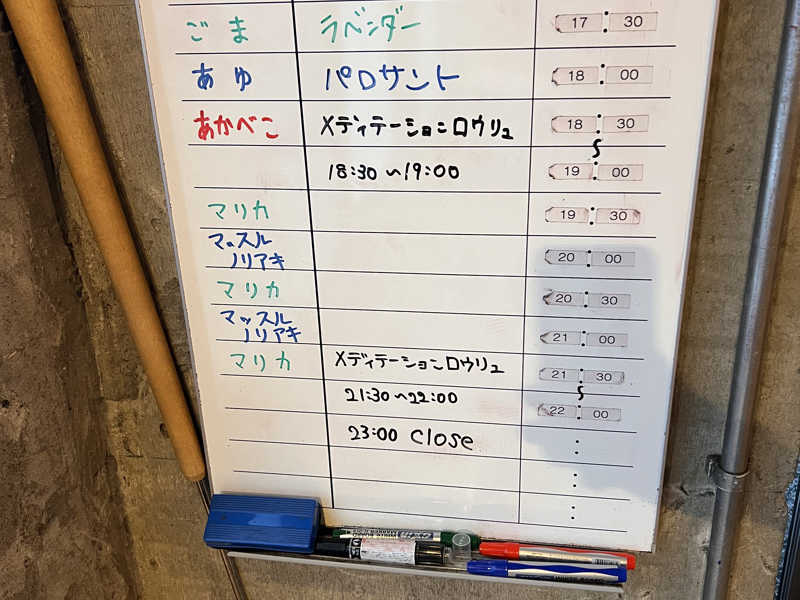 ごま ラベンダー 17:30
あゆ パロサント 18:00
あかべこ メディテーションロウリュ 18:30
18:30〜19:00 〜 19:00
マリカ 19:30
マッスル
ノリアキ 20:00
マリカ 20:30
マッスル
ノリアキ 21:00
マリカ メディテーションロウリュ 21:30
21:30〜22:00 〜 22:00
23:00 close :
:
: